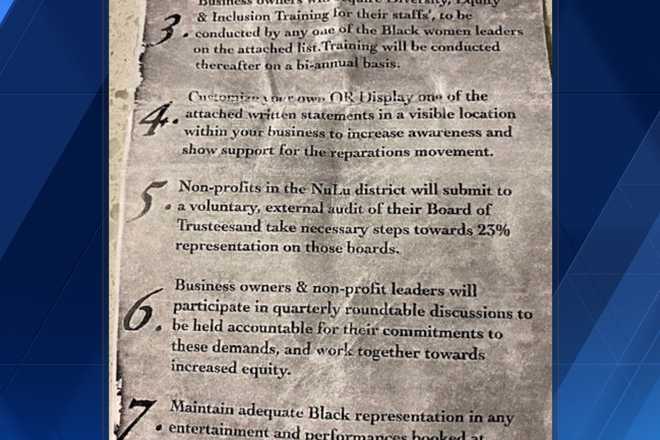 Business owners will require Diversity, Equity
3. & Inclusion Training for their staffs', to be
conducted by any one of the Black women leaders
on the attached list.Training will be conducted
thereafter on a bi-annual basis.
Customize your own OR Display one of the
4. attached written statements in a visible location
within your business to increase awareness and
show support for the reparations movement.
5. Non-profits in the NuLu district will submit to
a voluntary, external audit of their Board of
Trusteesand take necessary steps towards 23%
representation on those boards.
Business owners & non-profit leaders will
6. participate in quarterly roundtable discussions to
be held accountable for their commitments to
these demands, and work together towards
increased equity.
7. Maintain adequate Black representation in any
entertainment and performances booked at